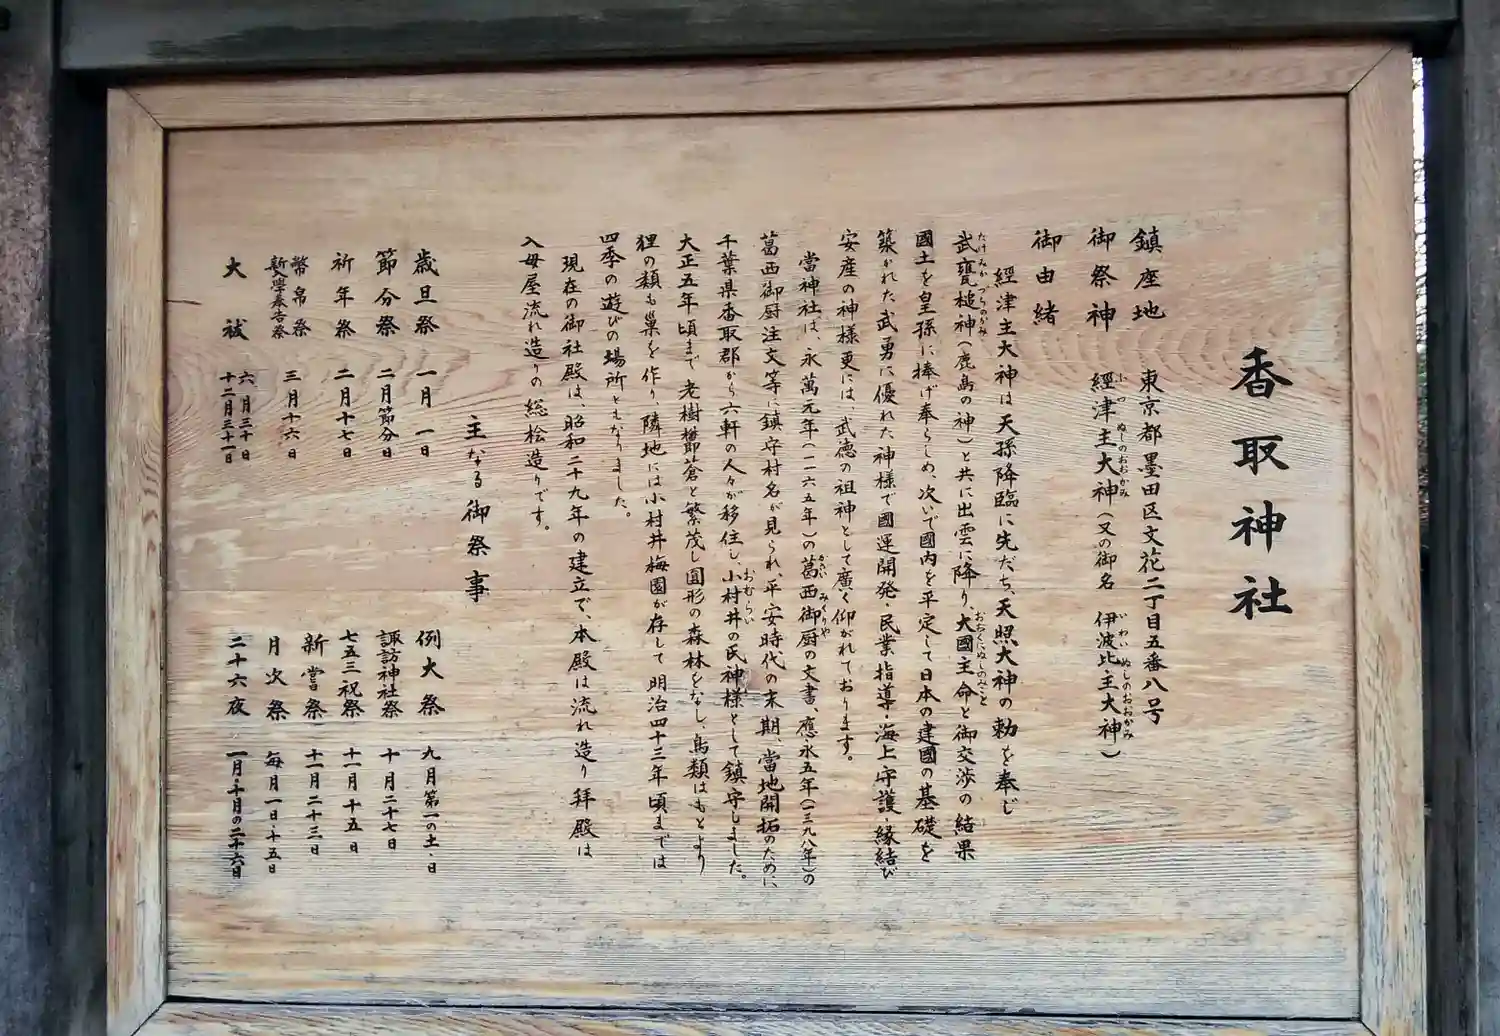 香取神社
鎮座地 東京都墨田区文花二丁目五番八号
御祭神 經津主大神（又の御名 伊波比主大神）
ふつ ぬしのおおかみ いわい ぬしのおおかみ
御由緒
經津主大神は天孫降臨に先だち、天照大神の勅を奉じ
武甕槌神（鹿島の神）と共に出雲に降り、大國主命と御交渉の結果
たけみかづちのかみ おおくにぬしのみこと
國土を皇孫に捧げ奉らしめ、次いで國内を平定して日本の建國の基礎を
築かれた武勇に優れた神様で國運開発・民業指導・海上守護・縁結び
安産の神様更には、武徳の祖神として廣く仰がれております。
當神社は、永萬元年（一一六五年）の葛西御厨の文書、應永五年（一三九八年）の
かさい みくりや
葛西御厨注文等に鎮守村名が見られ、平安時代の末期、當地開拓のために
千葉県香取郡から六軒の人々が移住し、小村井の氏神様として鎮守しました。
おむらい
大正五年頃まで老樹欝蒼と繁茂し圓形の森林をなし、鳥類はもとより
狸の類も巣を作り、隣地には小村井梅園が存して明治四十三年頃までは
四季の遊びの場所ともなりました。
現在の御社殿は、昭和二十九年の建立で、本殿は流れ造り拝殿は
入母屋流れ造りの総桧造りです。
主なる御祭事
歳旦祭 一月一日
節分祭 二月節分日
祈年祭 二月十七日
幣帛祭
新入學奉告祭 三月十六日
大祓 六月三十日
十二月三十一日
例大祭 九月第一の土・日
諏訪神社祭 十月二十七日
七五三祝祭 十一月十五日
新嘗祭 十一月二十三日
月次祭 毎月一日・十五日
二十六夜 一月・十月の二十六日